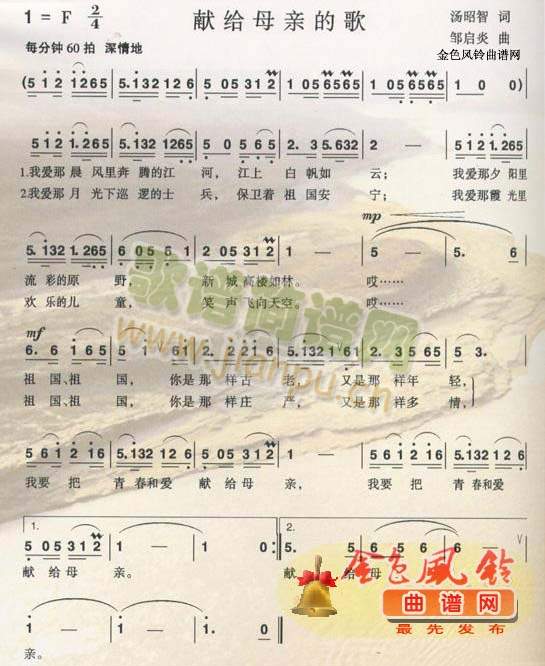 1 = F 2/4
献给母亲的歌
汤昭智 词
每分钟 60 拍 深情地
邹启炎 曲
金色风铃曲谱网
(5 1 2 1 265 | 5. 132 12 6 | 5 05 312 | 1 05 6565 | 1 05 6565 | 1 0 0) |
5 1 2 1. 265 | 5. 132 12 6 | 5 05 312 | 2. 3 5. 632 | 2 — | 5 1 2 1. 265 |
1.我爱那 晨 风里奔 腾的江 河, 江上 白 帆如 云; 我爱那夕 阳里
2.我爱那 月 光下巡 逻的士 兵, 保卫着 祖 国安 宁; 我爱那霞 光里
mp
5. 132 1. 265 | 6 05 5 1 | 2 05 312 | 1 — | 5 — | 5. 6 |
流 彩的原 野, 新 城高楼如林。 哎……
欢 乐的儿 童, 笑 声飞向天空。 哎……
mf
6. 6 165 | 5 1 0 61 | 2. 2 21 6 | 5. 132 161 | 2. 3 565 | 5 3. |
祖 国、祖 国, 你是 那 样古 老, 又是 那 样年 轻,
祖 国、祖 国, 你是 那 样庄 严, 又是 那 样多 情,
5 61 5 16 | 5. 132 12 6 | 5 05 312 | 1 — | 5 61 5 16 | 5. 132 12 6 |
我要 把 青 春和爱 献 给母 亲, 我要 把 青 春和爱
1.
2.
5 05 312 | 1 — | 1 0 :|| 5. 5 | 5 6 5 | 1 — | 1 — V |
献 给母 亲。 献 给 母
金色风铃
曲谱网
最先发布
1 — | 1 — | 1 — | 1 0 ||
亲。
歌谱简谱网
www.jianpu.cn